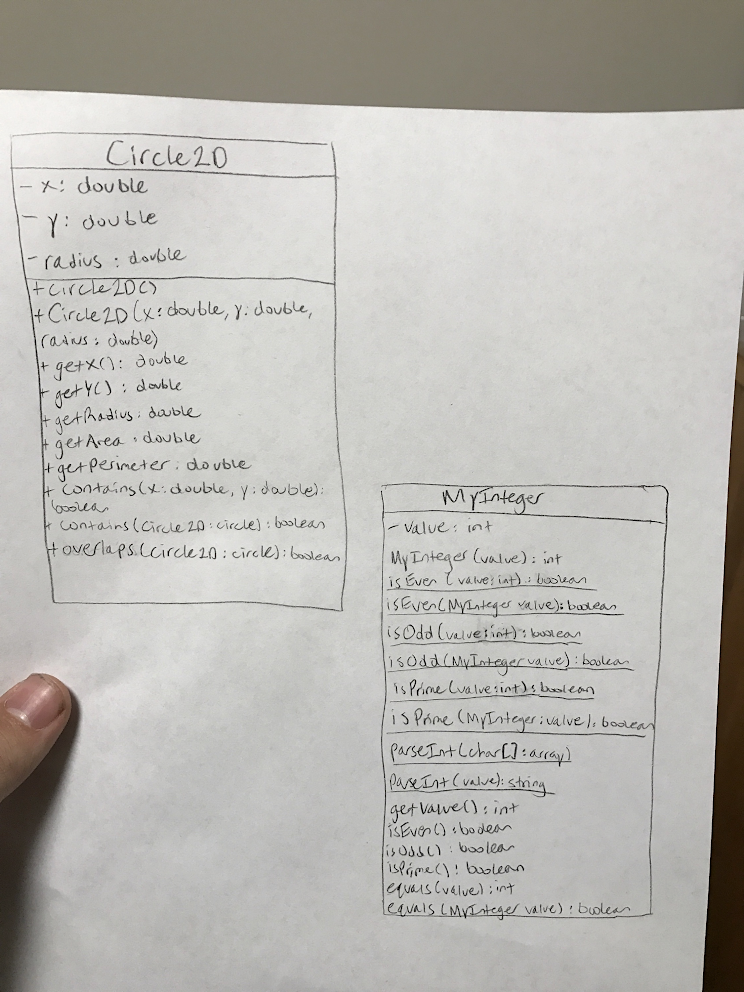 Circle2D
- x: double
- y: double
- radius: double
+ Circle2D()
+ Circle2D(x: double, y: double,
radius: double)
+ getX(): double
+ getY(): double
+ getRadius: double
+ getArea: double
+ getPerimeter: double
+ contains(x: double, y: double):
boolean
+ contains(Circle2D: circle): boolean
+ overlaps(Circle2D: circle): boolean
MyInteger
- value: int
MyInteger(value): int
isEven(value: int): boolean
isEven(MyInteger value): boolean
isOdd(value: int): boolean
isOdd(MyInteger value): boolean
isPrime(value: int): boolean
isPrime(MyInteger: value): boolean
parseInt(char[]: array)
parseInt(value): string
getValue(): int
isEven(): boolean
isOdd(): boolean
isPrime(): boolean
equals(value): int
equals(MyInteger value): boolean